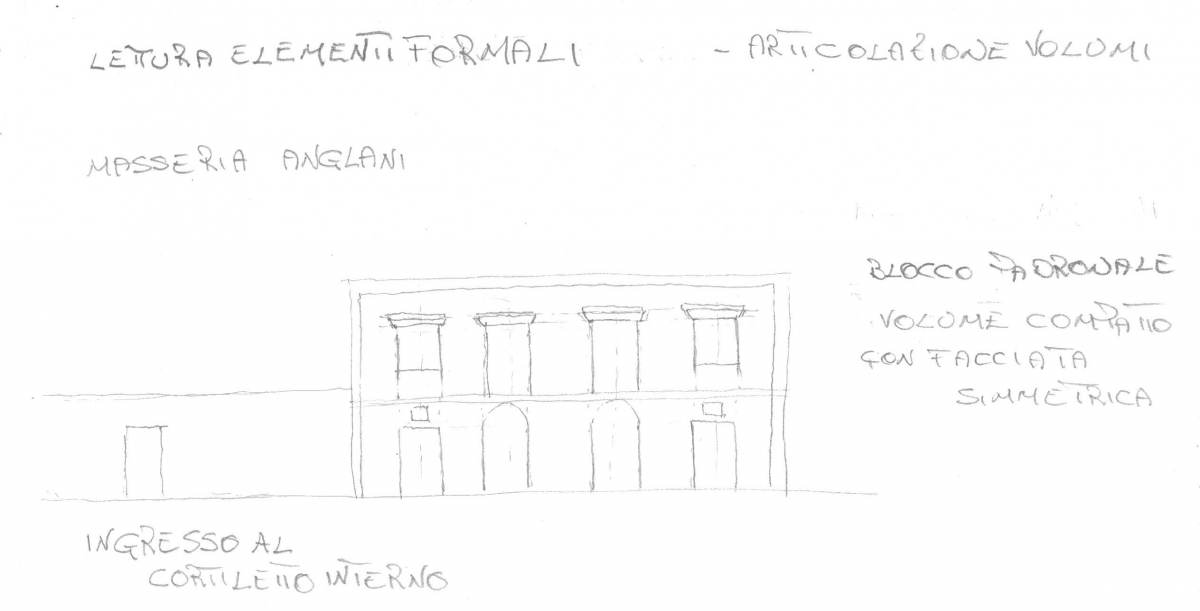 LETTURA ELEMENTI FORMALI - ARTICOLAZIONE VOLUMI
MASSERIA ANGLANI
BLOCCO PADRONALE
VOLUME COMPATTO
CON FACCIATA
SIMMETRICA
INGRESSO AL
CORTILETTO INTERNO